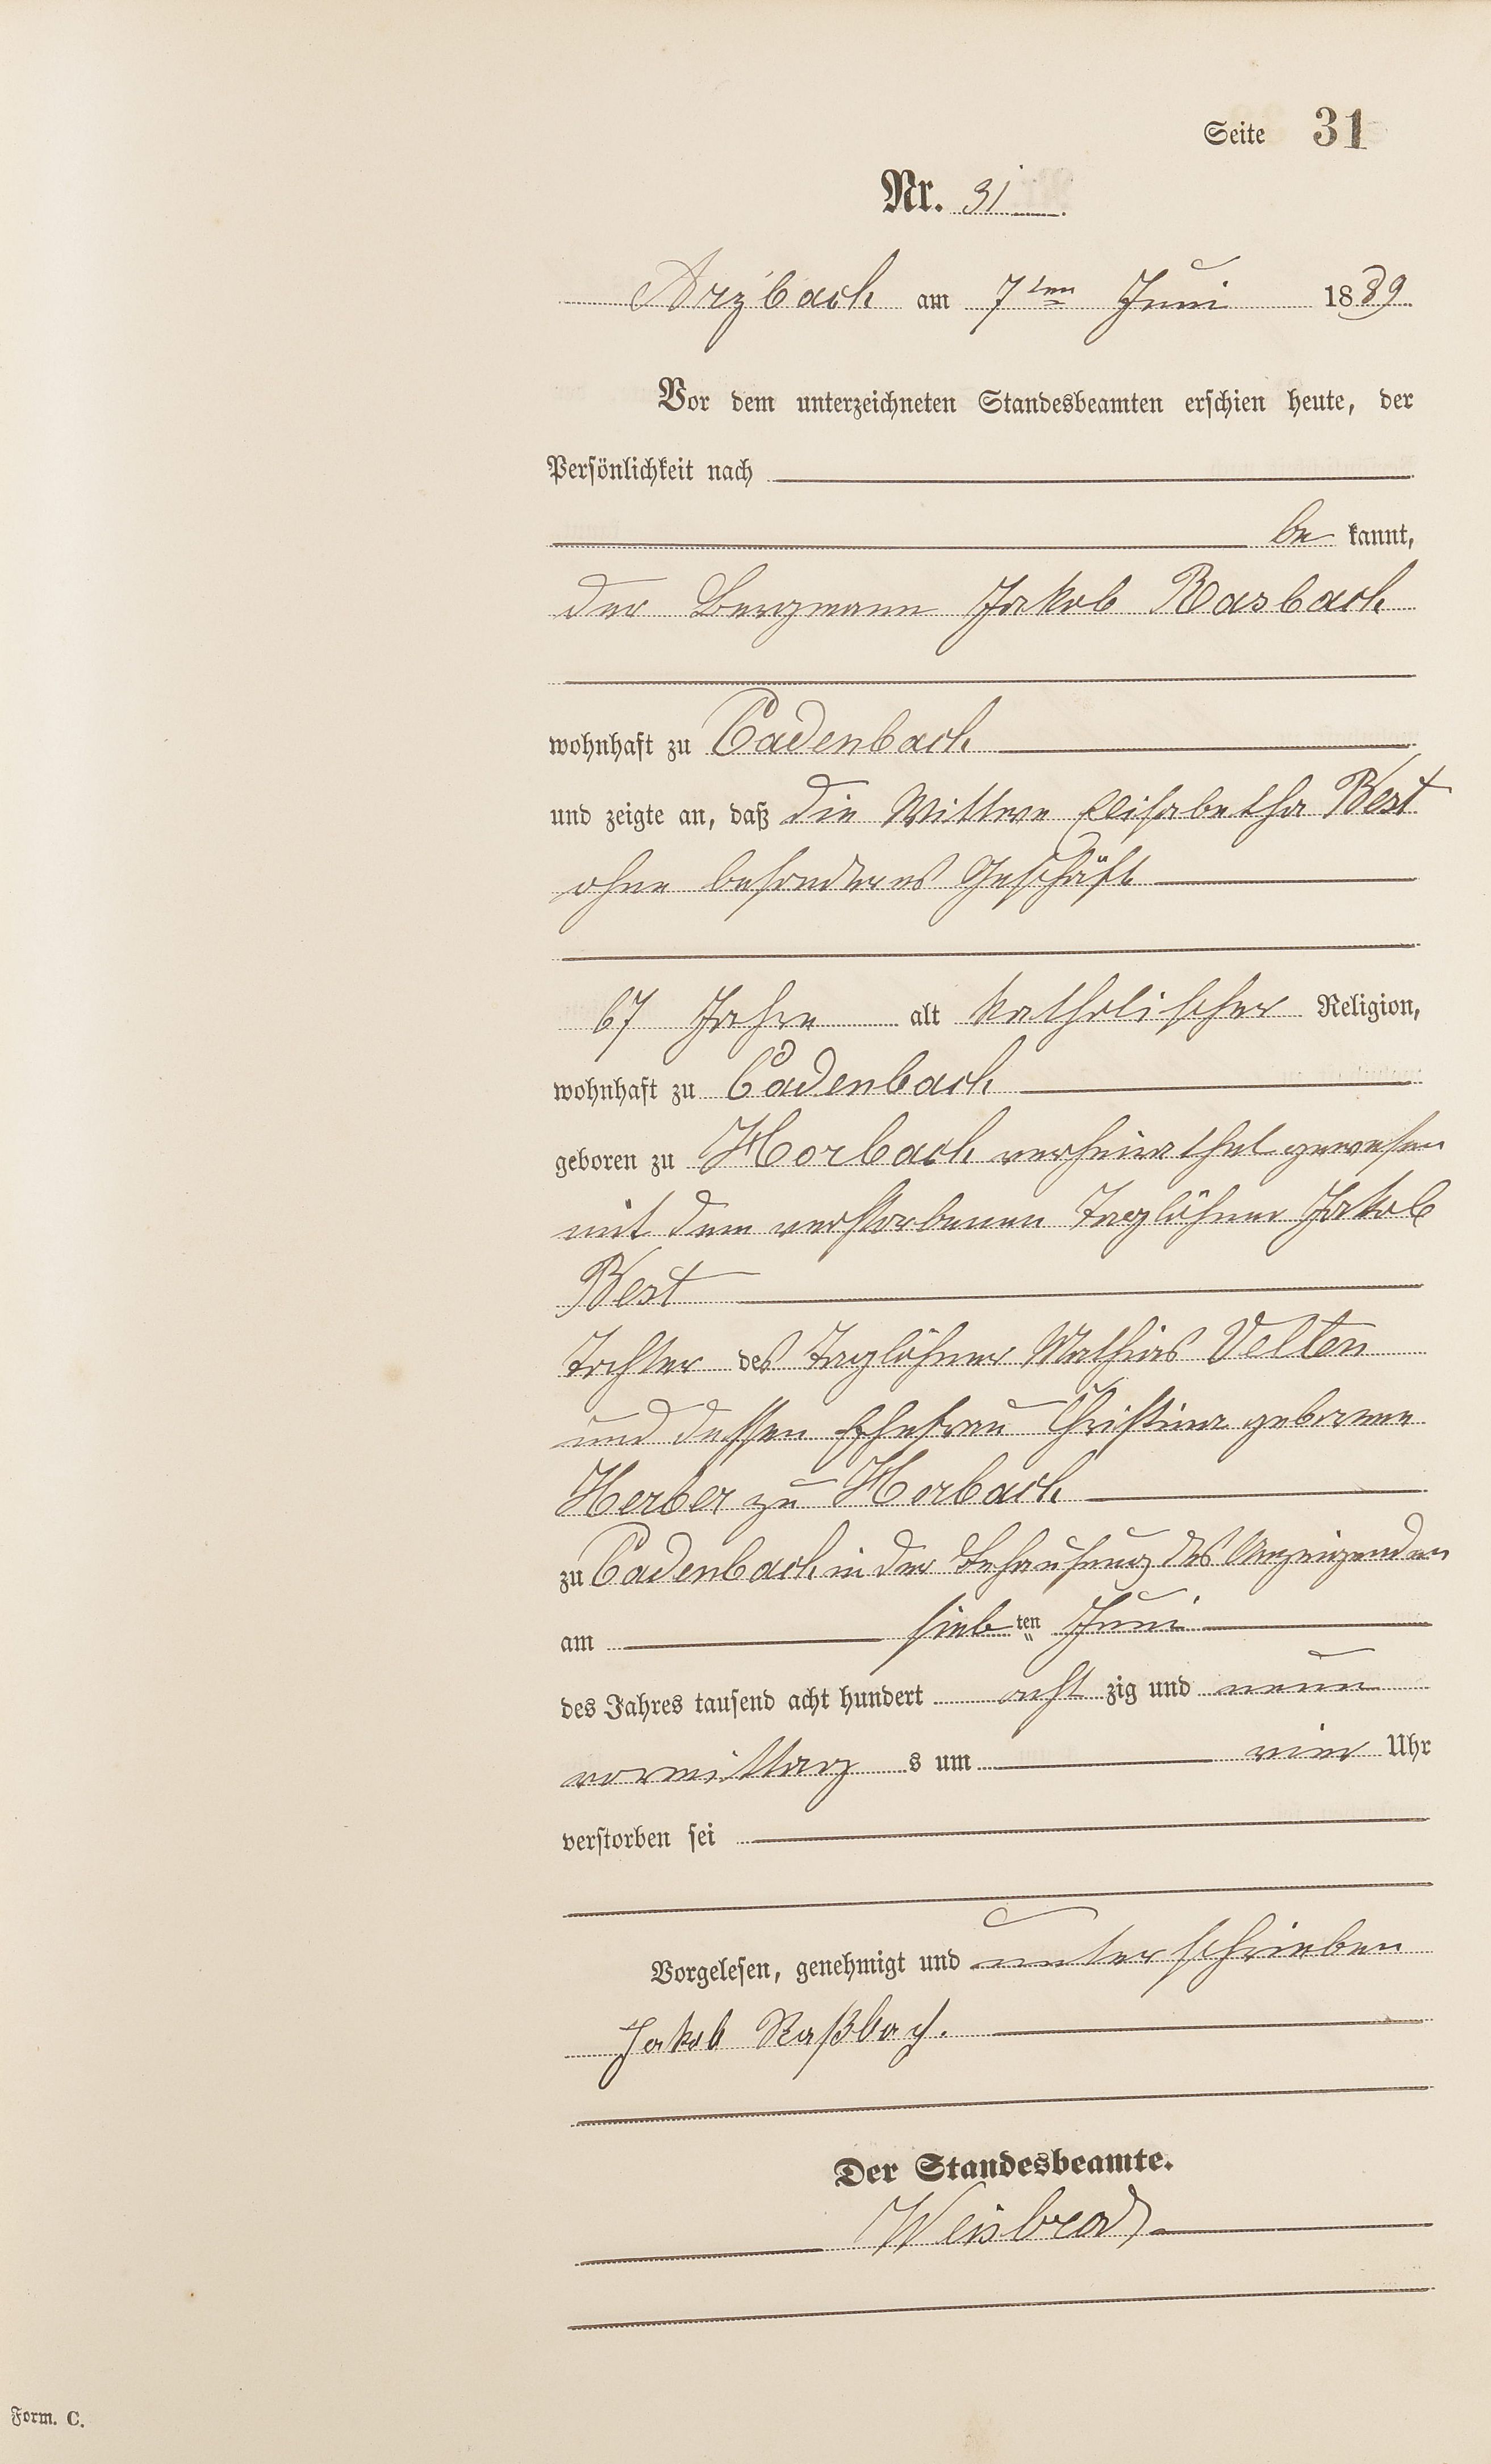 Seite 31
Nr. 31
Arzbach am 7ten Juni 1889
Vor dem unterzeichneten Standesbeamten erschien heute, der
Persönlichkeit nach
be kannt,
der Bergmann Jakob Rasbach
wohnhaft zu Cadenbach
und zeigte an, daß die Wittwe Elisabetha Best
ohne besonderes Geschäft
67 Jahre alt katholischer Religion,
wohnhaft zu Cadenbach
geboren zu Horbach verheirathet gewesen
mit dem verstorbenen Taglöhner Jakob
Best
Tochter des Taglöhner Mathias Velten
und dessen Ehefrau Christina geborene
Herber zu Horbach
zu Cadenbach in der Behausung des Anzeigenden
am sieb ten Juni
des Jahres tausend acht hundert acht zig und neun
vormittag s um vier Uhr
verstorben sei
Vorgelesen, genehmigt und unterschrieben
Jakob Raßbach.
Der Standesbeamte.
Weisbrod
Form. C.